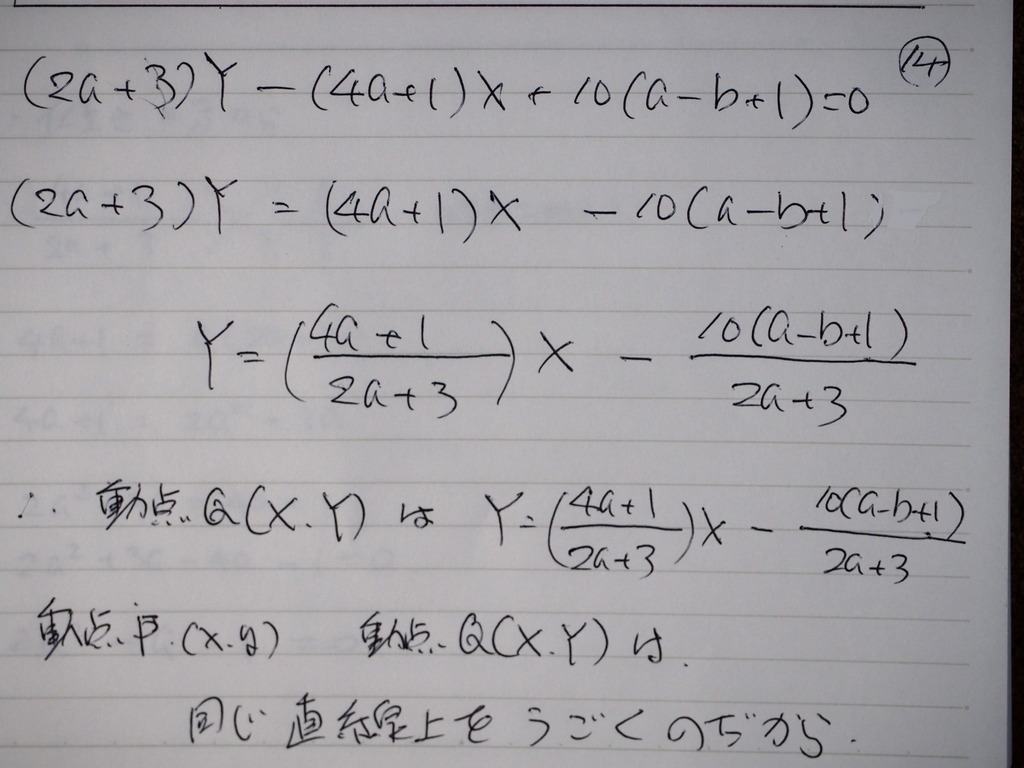 ⑭
(2a+3)Y-(4a+1)X+10(a-b+1)=0
(2a+3)Y=(4a+1)X -10(a-b+1)
Y=((4a+1)/(2a+3))X - 10(a-b+1)/(2a+3)
∴ 動点Q(X.Y)は Y=((4a+1)/(2a+3))X - 10(a-b+1)/(2a+3)
動点P.(x.y) 動点Q(X.Y)は.
同じ直線上をうごくのだから.